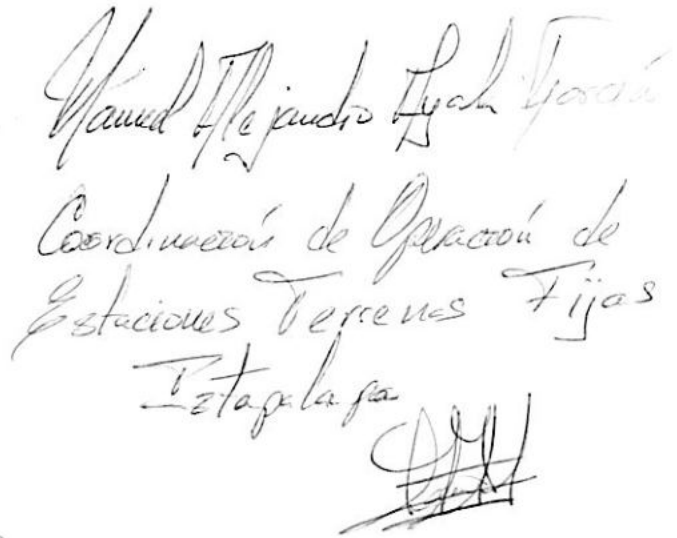 Manuel Alejandro Ayala
Coordinación de Operación de
Estaciones Terrenas Fijas
Iztapalapa